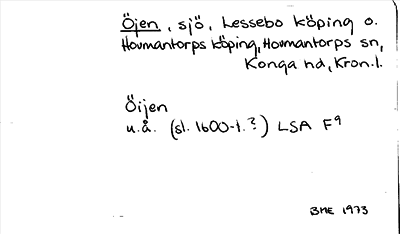 Öjen, sjö, Lessebo köping o.
Hovmantorps köping, Hovmantorps sn,
Konga hd, Kron.l.
Öijen
u.å. (sl. 1600-t.?) LSA F9
BME 1973